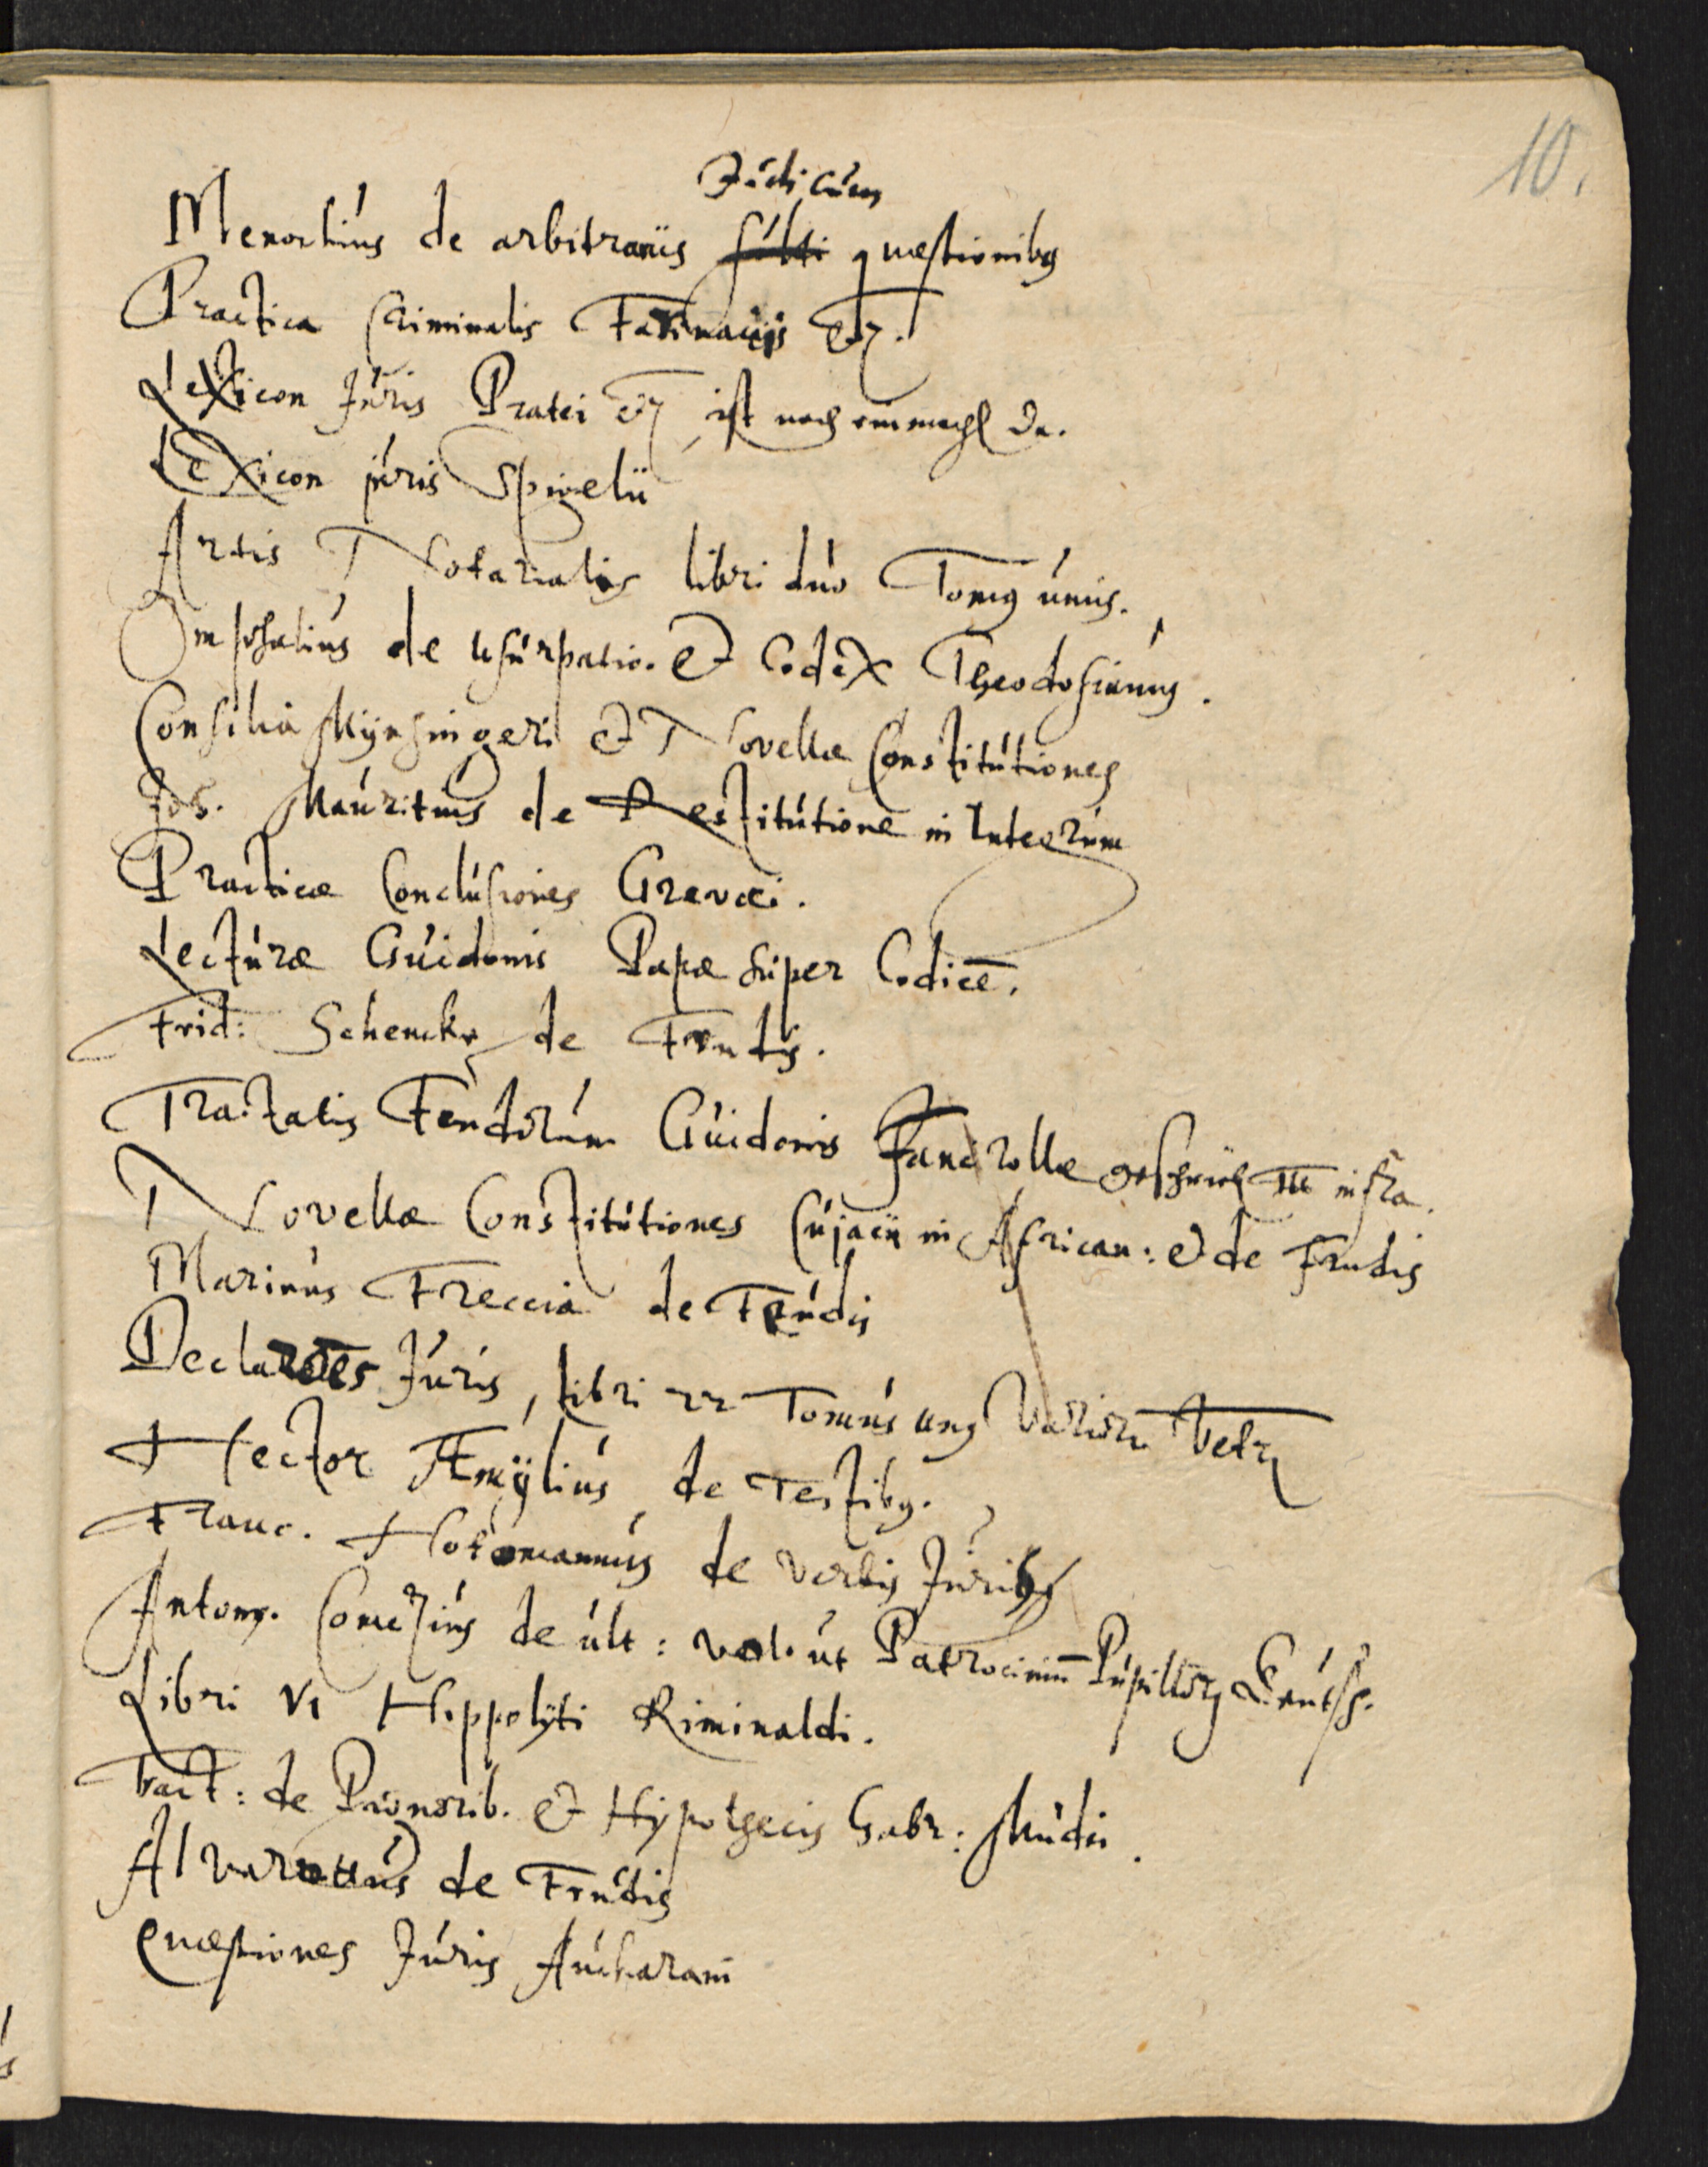 10.
Judicum
Menochius de arbitrariis quæstionibus
Practica Criminalis Farinacijs
Lexicon Juris Pratei ist noch einmahl da.
Lexicon juris Spigelii
Artis Notarialis libri duo Tomus unus.
Omphalius de usurpatio. et Codex Theodosianus.
Consilia Mÿnsingeri et Novellæ Constitutiones
Joh. Mauritius de Restitutione in Integrum
Practicæ Conclusiones Grevæi.
Lecturæ Guidonis Papæ super Codicē.
Frid: Schencke de Feudis.
Tractatis Feudorum Guidonis Pancirollæ infra.
Novellæ Constitutiones Cujacii in African: et de Feudis
Marinus Freccia de Feudis
Declarōēs Juris, libri Tomus unus Variorū Vetr
Hector Æmÿlius de Testibus.
Franc. Hotomannus de verbis Juribus
Antony. Comezius de ult: vol. ut Patrociniū Pupillorum Teutsch.
Libri VI Hippolÿti Riminaldi.
Tract: de Pignorib. et Hÿpothecis Gabr: Mudei.
Alvarottus de Feudis
Quæstiones Juris Ancharani